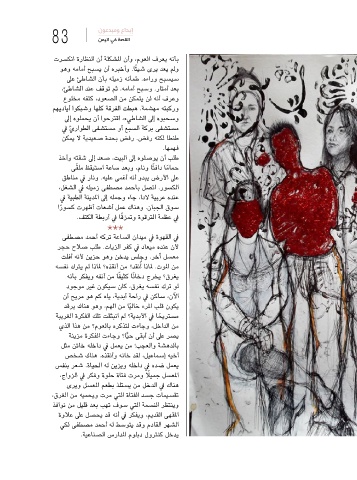 83
إبداع ومبدعون
القصة في اليمن
بأنه يعرف العوم، وأن المشكلة أن النظارة انكسرت
ولم يعد يرى شيئًا. وأخبره أن يسبح أمامه وهو
سيسبح وراءه. طمأنه زميله بأن الشاطئ على
بعد أمتار. وسبح أمامه. ثم توقف عند الشاطئ.
وعرف أنه لن يتمكن من الصعود، كتفه مخلوع
وركبته مهشمة. هبطت الفرقة كلها وشبكوا أياديهم
وسحبوه إلى الشاطيء، اقترحوا أن يحملوه إلى
مستشفى بركة السبع أو مستشفى الطواريء في
طنطا لكنه رفض. رفض بحدة صعيدية لا يمكن
فهمها.
طلب أن يوصلوه إلى البيت. صعد إلى شقته وأخذ
حمامًا دافئًا ونام، وبعد ساعة استيقظ ملقى
على الأرض يبدو أنه أغمي عليه. ونار في مناطق
الكسور. اتصل بأحمد مصطفى زميله في الشغل،
عنده عربية لادا. جاء وحمله إلى المدينة الطبية في
سوق الجبان. وهناك حمل أشعات أظهرت كسورًا
في عظمة الترقوة وتمزقًا في أربطة الكتف.
***
في القهوة في ميدان الساعة تركه أحمد مصطفى
لأن عنده ميعاد في كفر الزيات. طلب صلاح حجر
معسل آخر. وجلس يدخن وهو حزين لأنه أفلت
من الموت. لماذا أُنقذ؟ من أنقذه؟ لماذا لم يترك نفسه
يغرق؟ يخرج دخانًا كثيفًا من أنفه ويفكر بأنه
لو ترك نفسه يغرق، كان سيكون غير موجود
الآن. ساكن في راحة أبدية. ياه كم هو مريح أن
يكون قلب المرء خاليًا من الهم، وهو هناك يرقد
مستريحًا في الأبدية؟ لم انبثقت تلك الفكرة الغريبة
من الداخل، وجاءت لتذكره بالعوم؟ من هذا الذي
يصر على أن أبقى حيًّا؟ وجاءت الفكرة مزينة
بالدهشة والعجب: من يعمل في داخله خائن مثل
أخيه إسماعيل، لقد خانه وأنقذه. هناك شخص
يعمل ضده في داخله ويزين له الحياة. شعر بنفس
المعسل جميلًا ومرت فتاة حلوة وفكر في الزواج،
هناك في الداخل من يستلذ بطعم المعسل ويرى
تقسيمات جسد الفتاة التي مرت ويحميه من الغرق،
وينتظر النسمة التي سوف تهب بعد قليل من نوافذ
المقهى القديم. ويفكر في أنه قد يحصل على علاوة
الشهر القادم وقد يتوسط له أحمد مصطفى لكي
يدخل كنترول دبلوم المدارس الصناعية.